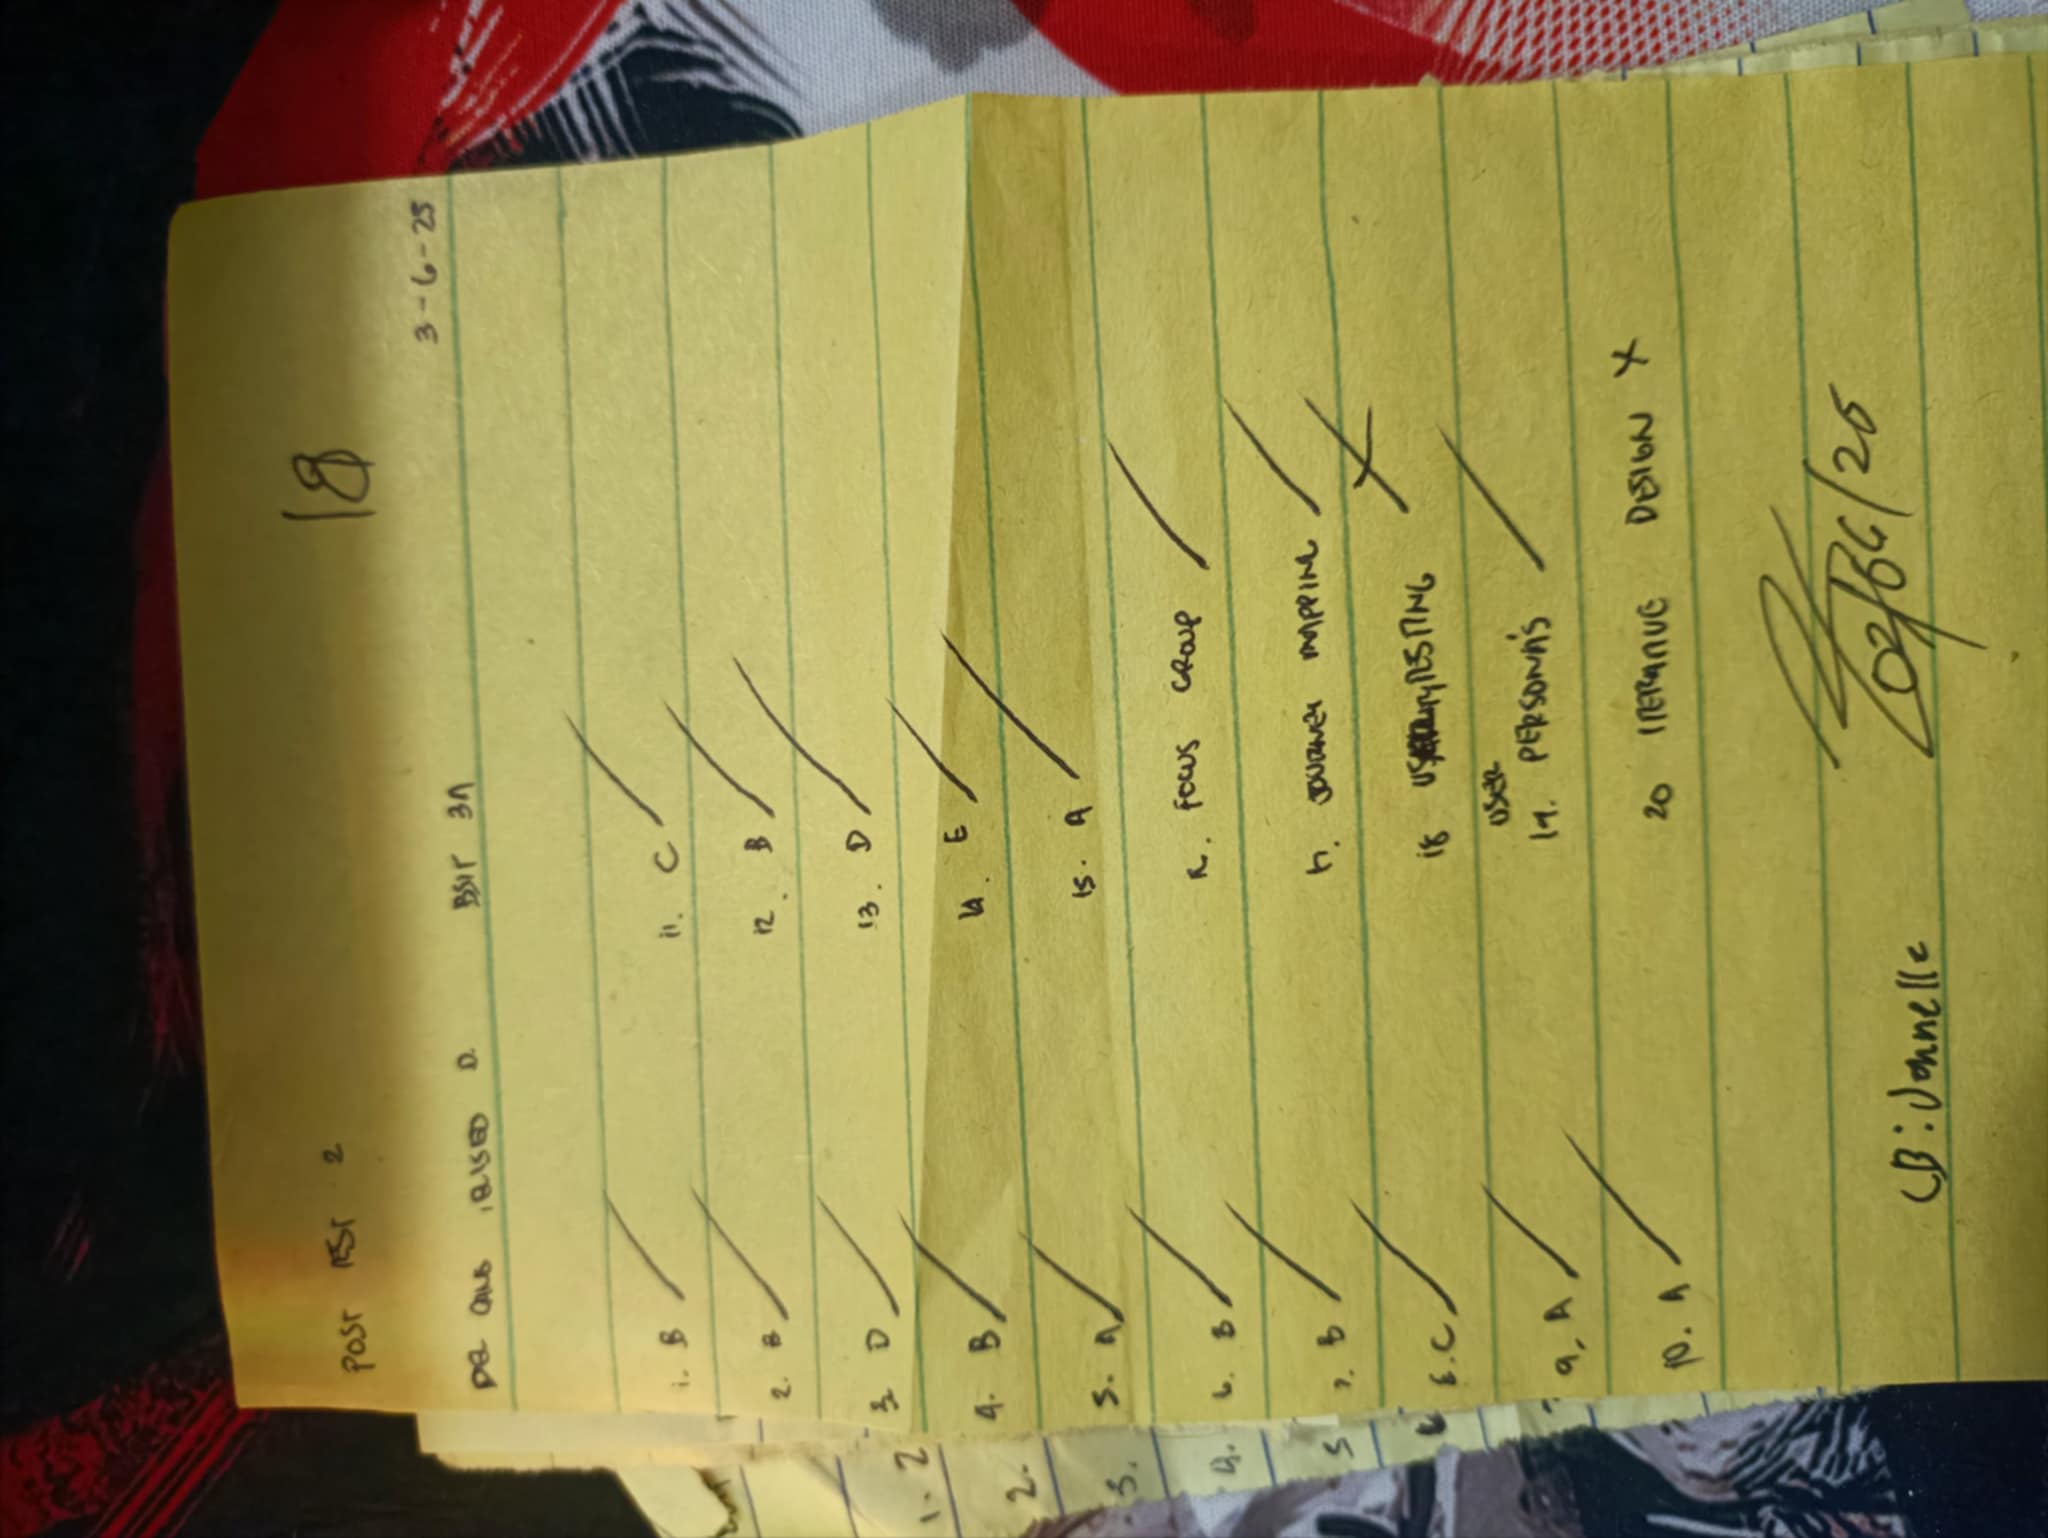 18
POST TEST 2
3-6-25
DEL D. BSIT 3A
1. B
2. B
3. D
4. B
5. A
6. B
7. B
8. C
9. A
10. A
11. C
12. B
13. D
14. E
15. A
FOCUS GROUP
17. JOURNEY MAPPING
18 TESTING
USER
19. PERSONA'S
20 ITERATIVE DESIGN X
CB: Jonnelle
1. 2
2.
3.
4.
5
6